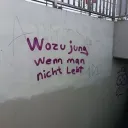 Wozu jung
wenn man
nicht Lebt